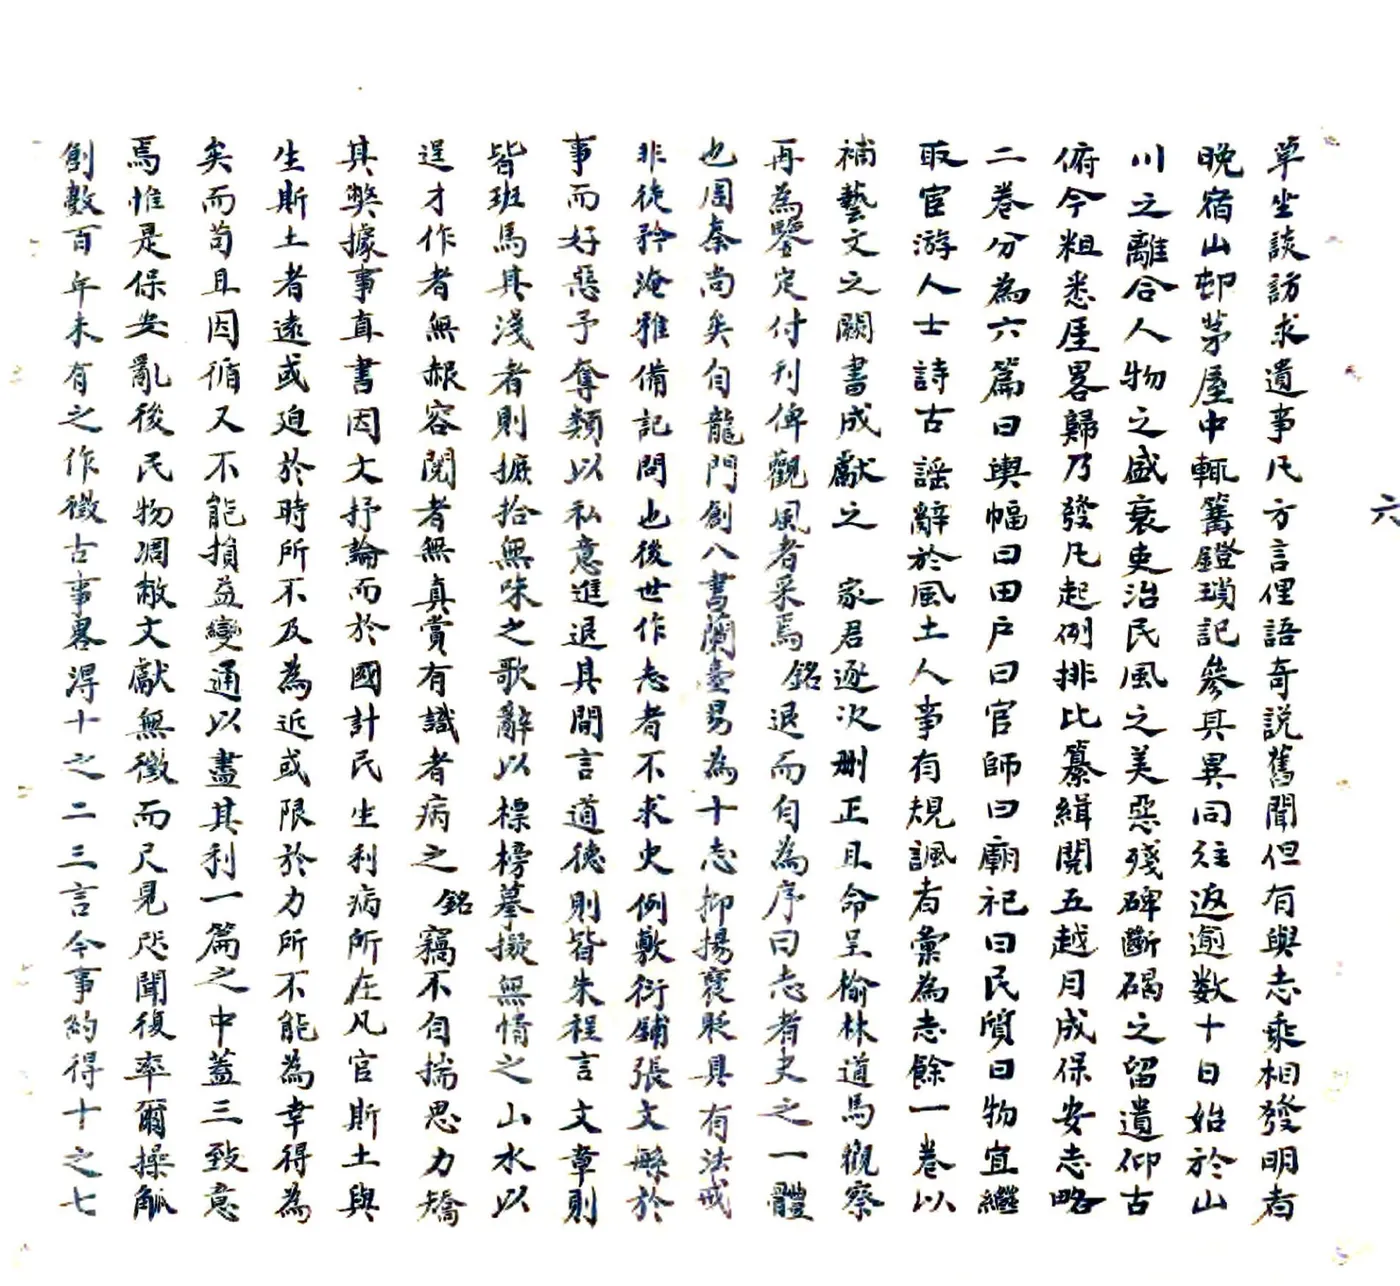 草坐談訪求遺事凡方言俚語奇説舊聞但有與志乘相發明者
晚宿山邨茅屋中輒篝鐙瑣記參其異同往返逾数十日始於山
川之離合人物之盛衰吏治民風之美惡殘碑斷碣之留遺仰古
俯今粗悉厓畧歸乃發凡起例排比纂緝閱五越月成保安志略
二卷分為六篇曰輿幅曰田户曰官師曰廟祀曰民質曰物宜繼
取宦游人士詩古謡辭於風土人事有規諷者彙為志餘一卷以
補藝文之闕書成獻之 家君逐次刪正且命呈榆林道馬觀察
再為鑒定付刊俾觀風者采焉 銘退而自為序曰志者史之一體
也周秦尚矣自龍門創八書蘭臺易為十志抑揚褒貶具有法戒
非徒矜淹雅備記問也後世作志者不求史例敷衍鋪張文繇於
事而好惡予奪類以私意進退其間言道德則皆朱程言文章則
皆班馬其淺者則摭拾無味之歌辭以標榜摹擬無情之山水以
逞才作者無赧容閱者無真賞有識者病之 銘竊不自揣思力矯
其獘據事直書因文抒論而於國計民生利病所在凡官斯土與
生斯土者遠或迫於時所不及為近或限於力所不能為幸得為
矣而苟且因循又不能損益變通以盡其利一篇之中蓋三致意
焉惟是保安亂後民物凋敝文獻無徵而尺見咫聞復率爾操觚
創數百年未有之作徵古事畧得十之二三言今事約得十之七
六